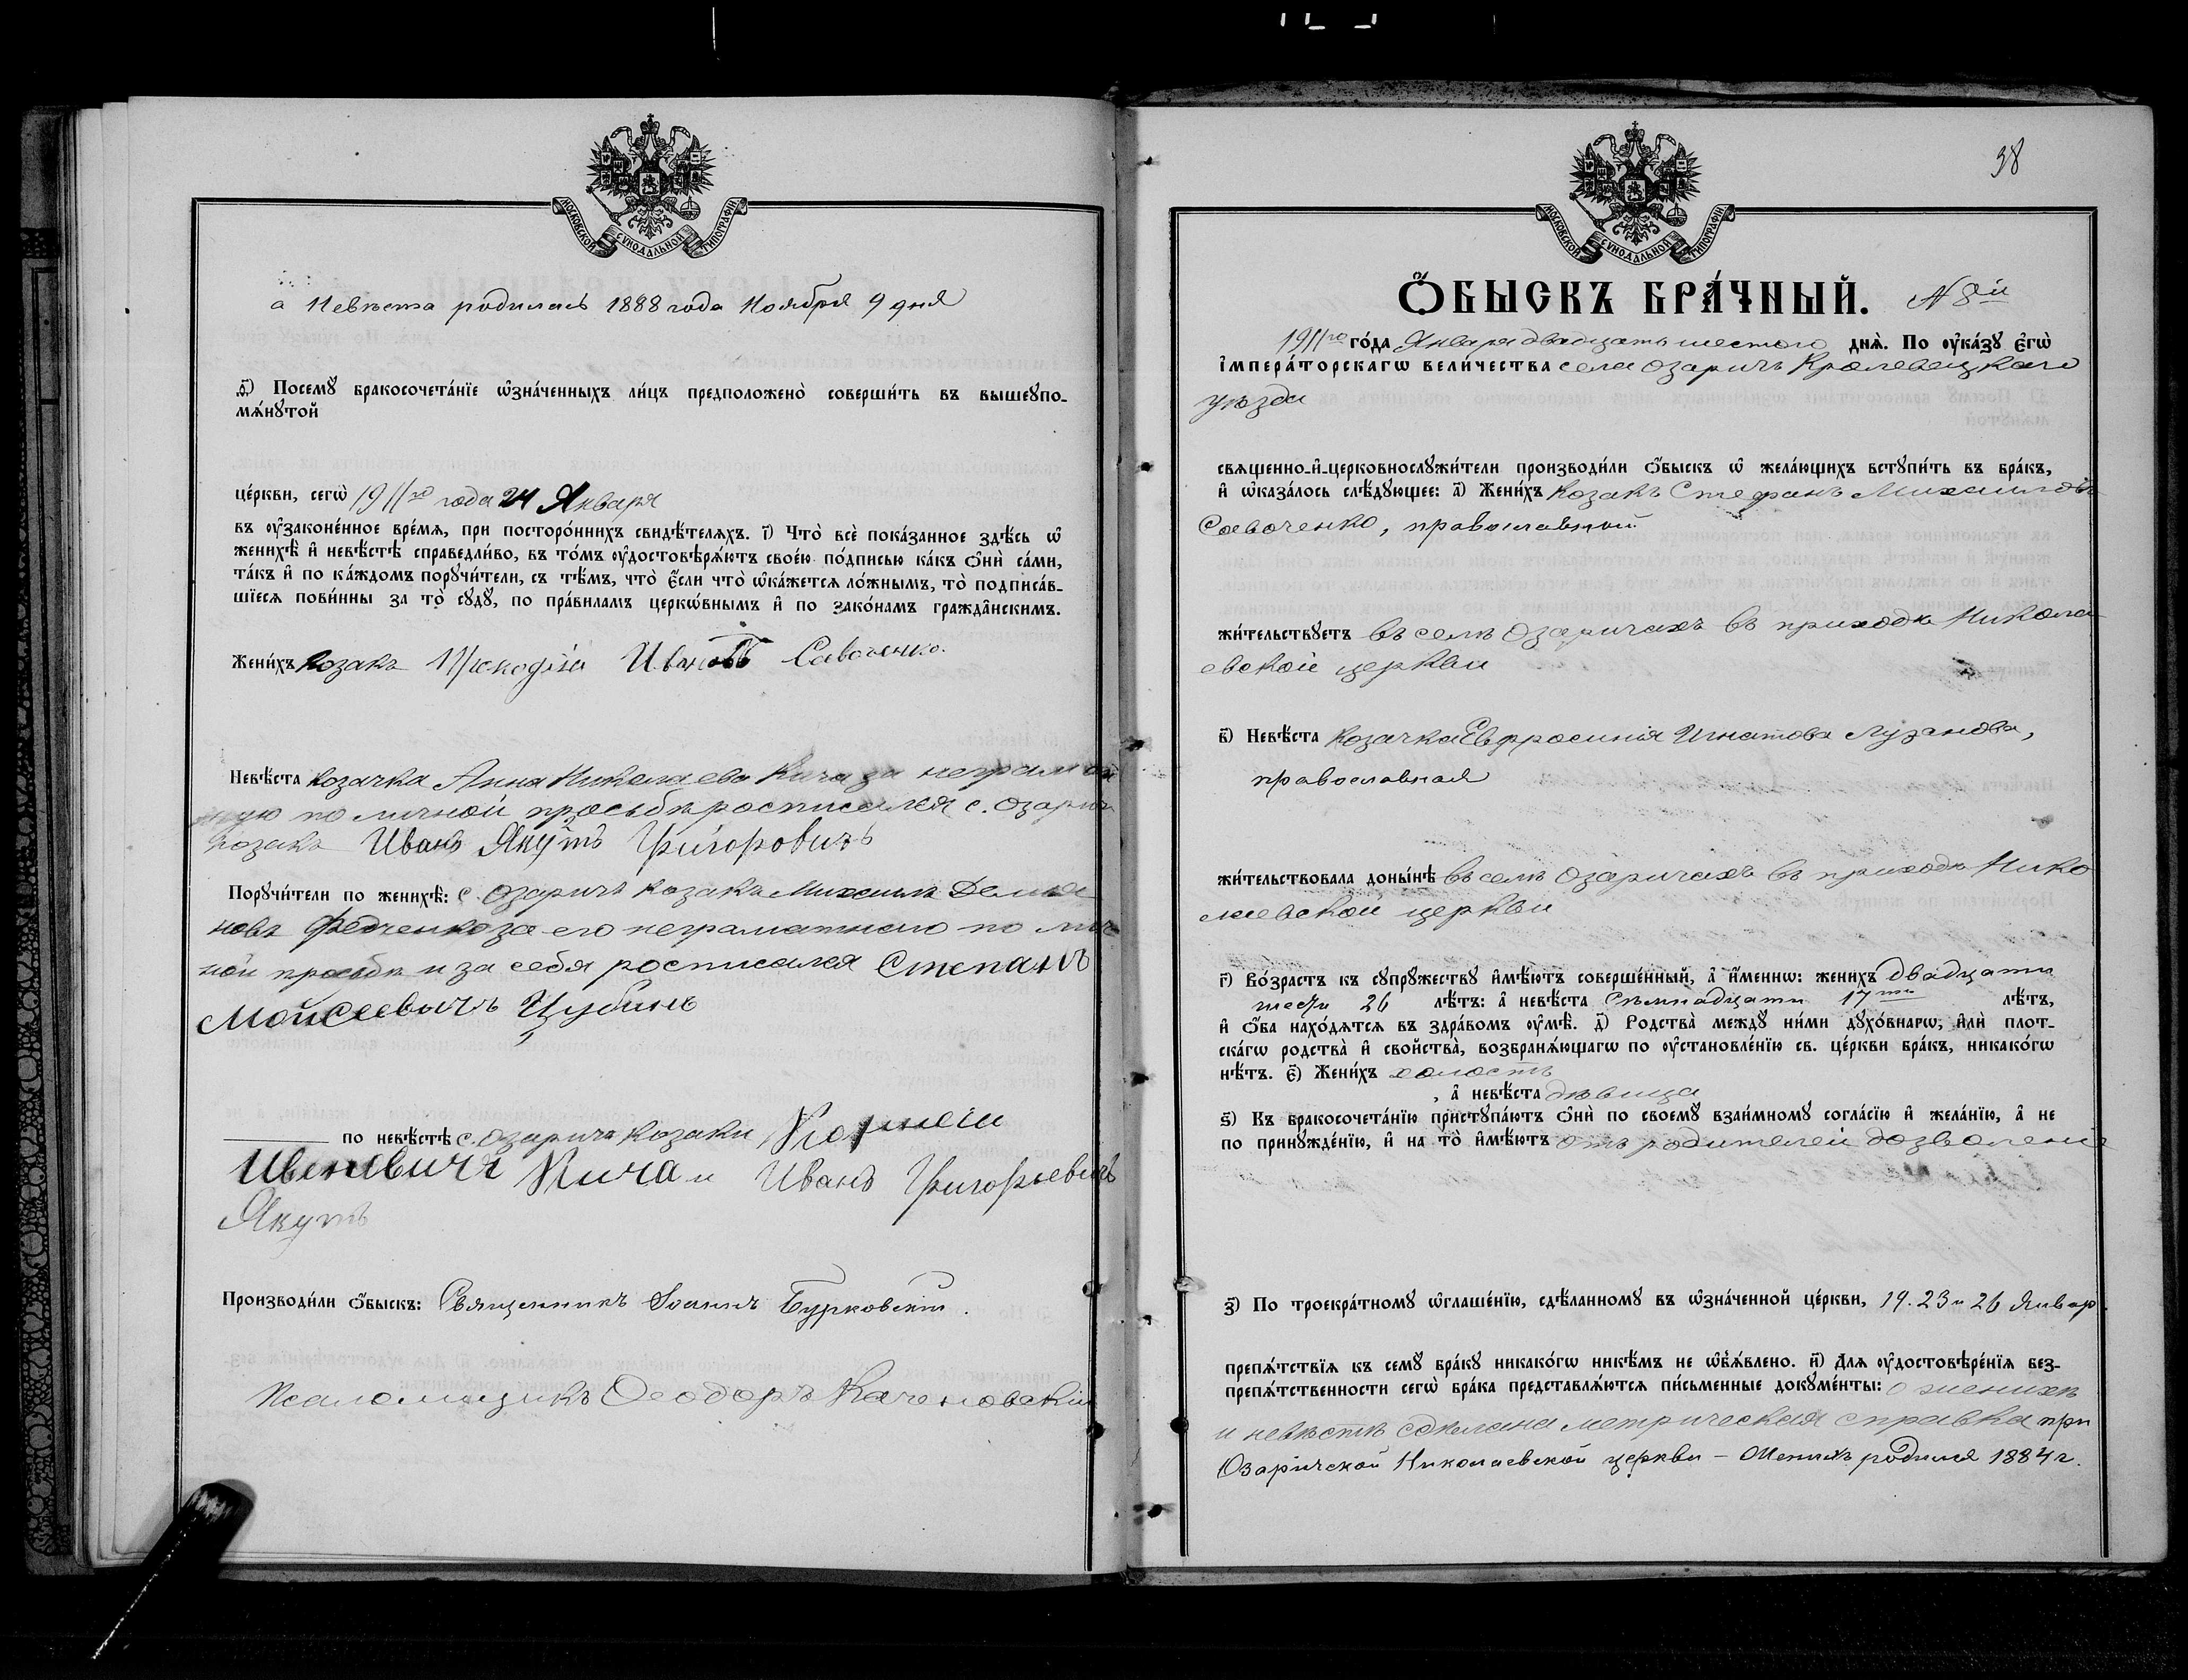 МОСКОВСКОЙ СѴНОДАЛЬНОЙ ТИПОГРАФІИ.
а Невѣста родилась 1888 года Ноября 9 дня
д҃і) Посемꙋ бракосочета́нїе ѡ҆зна́ченныхъ ли́цъ предположено̀ соверши́ть въ вышеꙋпо-
мѧ́нꙋтой
це́ркви, сегѡ̀ 1911го года 24 Января
въ оу҆законе́нное вре́мѧ, при посторо́ннихъ свидѣ́телѧхъ. і҃) Что̀ всѐ пока́занное здѣ́сь ѡ҆
женихѣ̀ и҆ невѣ́стѣ справедли́во, въ то́мъ оу҆достовѣрѧ́ютъ свое́ю по́дписью ка́къ ѻ҆нѝ са́ми,
та́къ и҆ по ка́ждомъ порꙋчи́тели, съ тѣ́мъ, что̀ є҆́сли что̀ ѡ҆ка́жетсѧ ло́жнымъ, то̀ подписа́в-
шїесѧ пови́нны за то̀ сꙋдꙋ̀, по пра́виламъ церкѡ́внымъ и҆ по зако́намъ гражда̂нскимъ.
Жени́хъ Козакъ Прокофій Ивановъ Савоченко.
Невѣ́ста козачка Анна Николаева Кича за неграмот
ную по личной просьбѣ росписался с. Озаричъ
козакъ Иванъ Якутъ Григоровичъ
Порꙋчи́тели по женихѣ̀: с. Озаричъ козакъ Михаилъ Демья
новъ Федченко за его неграматного по лич
ной просьбѣ и за себя росписался Степанъ
Мойсеевичъ Цубинъ
по невѣ́стѣ с. Озаричъ козаки Корнеій
Ивановичъ Кича и Иванъ Григорьевичъ
Якутъ
Производи́ли ѻ҆́быскъ: Священникъ Іоаннъ Бурковскій.
Псаломщикъ Ѳеодоръ Каченовскій
38
МОСКОВСКОЙ СѴНОДАЛЬНОЙ ТИПОГРАФІИ.
Ѻ҆́БЫСКЪ БРА́ЧНЫЙ. N 8й
1911го го́да Января двадцать шестого днѧ̀. По оу҆ка́зꙋ є҆гѡ̀
і҆мпера́торскагѡ вели́чества села Озаричъ Кролевецкаго
уѣзда
свѧщенно-и҆-церковнослꙋжи́тели производи́ли ѻ҆́быскъ ѡ҆ жела́ющихъ встꙋпи́ть въ бра́къ,
и҆ ѡ҆каза́лось слѣ́дꙋющее: а҃) Жени́хъ козакъ Стефанъ Михаиловъ
Савоченко, православный
жи́тельствꙋетъ въ селѣ Озаричахъ въ приходѣ Никола
евской церкви
в҃) Невѣ́ста козачка Евфросинія Игнатова Лузанова,
православная
жи́тельствовала доны́нѣ въ селѣ Озаричахъ въ приходѣ Нико
лаевской церкви
г҃) Во́зрастъ къ сꙋпрꙋ́жествꙋ и҆мѣ́ютъ соверше́нный, а҆ и҆́меннѡ: жени́хъ двадцати
шести 26 лѣ́тъ: а҆ невѣ́ста Семнадцати 17ти лѣ́тъ,
и҆ ѻ҆́ба нахо́дѧтсѧ въ здра́вомъ оу҆мѣ̀. д҃) Родства̀ междꙋ̀ ни́ми дꙋхо́внагѡ, и҆лѝ плот-
ска́гѡ родства̀ и҆ свойства̀, возбранѧ́ющагѡ по оу҆становле́нїю св. це́ркви бра́къ, никако́гѡ
нѣ́тъ. є҃) Жени́хъ холостъ
, а҆ невѣ́ста дѣвица
ѕ҃) Къ бракосочета́нїю пристꙋпа́ютъ ѻ҆нѝ по своемꙋ̀ взаи́мномꙋ согла́сїю и҆ жела́нїю, а҆ не
по принꙋжде́нїю, и҆ на то̀ и҆мѣ́ютъ отъ родителей дозволеніе
з҃) По троекра́тномꙋ ѡ҆глаше́нїю, сдѣ́ланномꙋ въ ѡ҆зна́ченной це́ркви, 19. 23 и 26 Январ.
препѧ́тствїѧ къ семꙋ̀ бра́кꙋ никако́гѡ никѣ́мъ не ѡ҆б̾ѧ́влено. и҃) Длѧ оу҆достовѣре́нїѧ без-
препѧ́тственности сегѡ̀ бра́ка представлѧ́ютсѧ пи́сьменные докꙋме́нты: о женихѣ
и невѣстѣ сдѣлана метрическая справка при
Озаричской Николаевской церкви – Женихъ родился 1884 г.